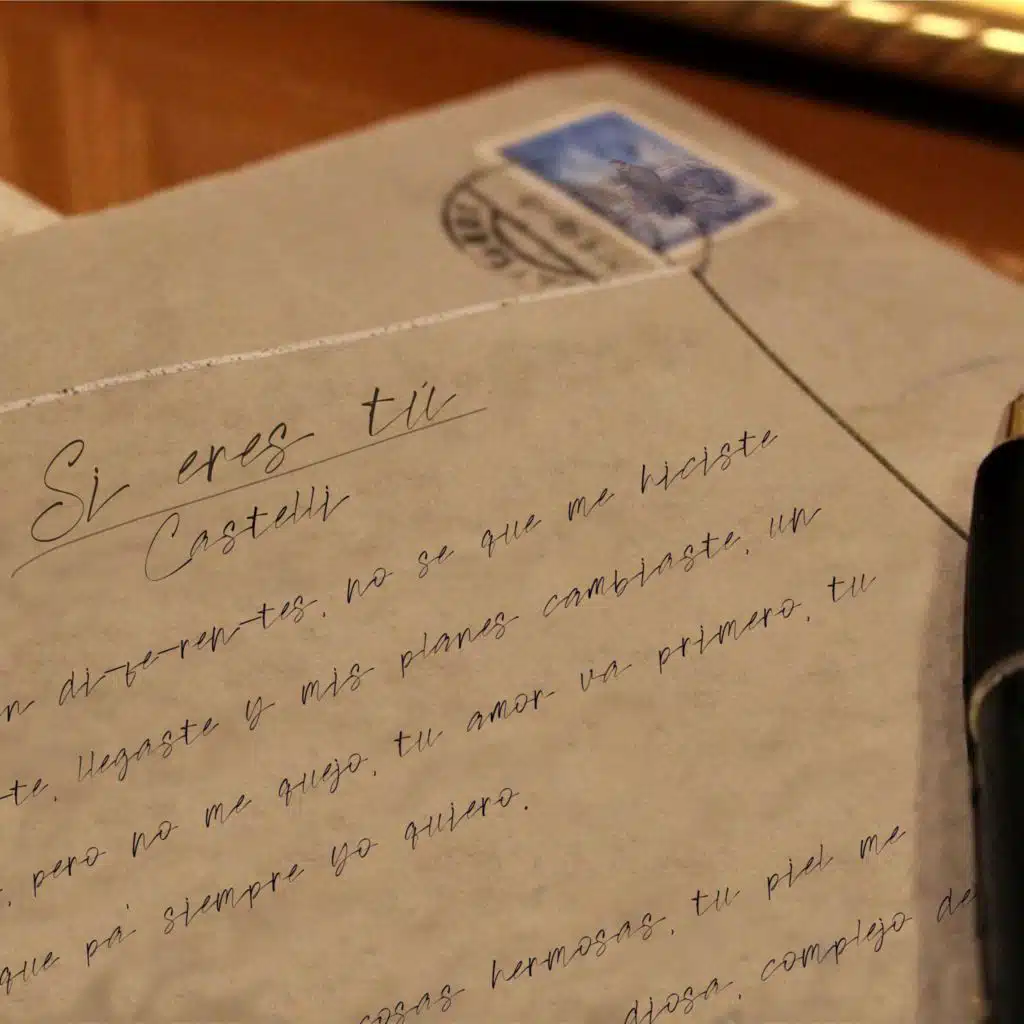 Si eres tú
Castelli
n di-fe-ren-tes, no se que me hiciste
-te, llegaste y mis planes cambiaste, un
, pero no me quejo, tu amor va primero, tu
que pa' siempre yo quiero.
cosas hermosas, tu piel me
diosa, complejo de